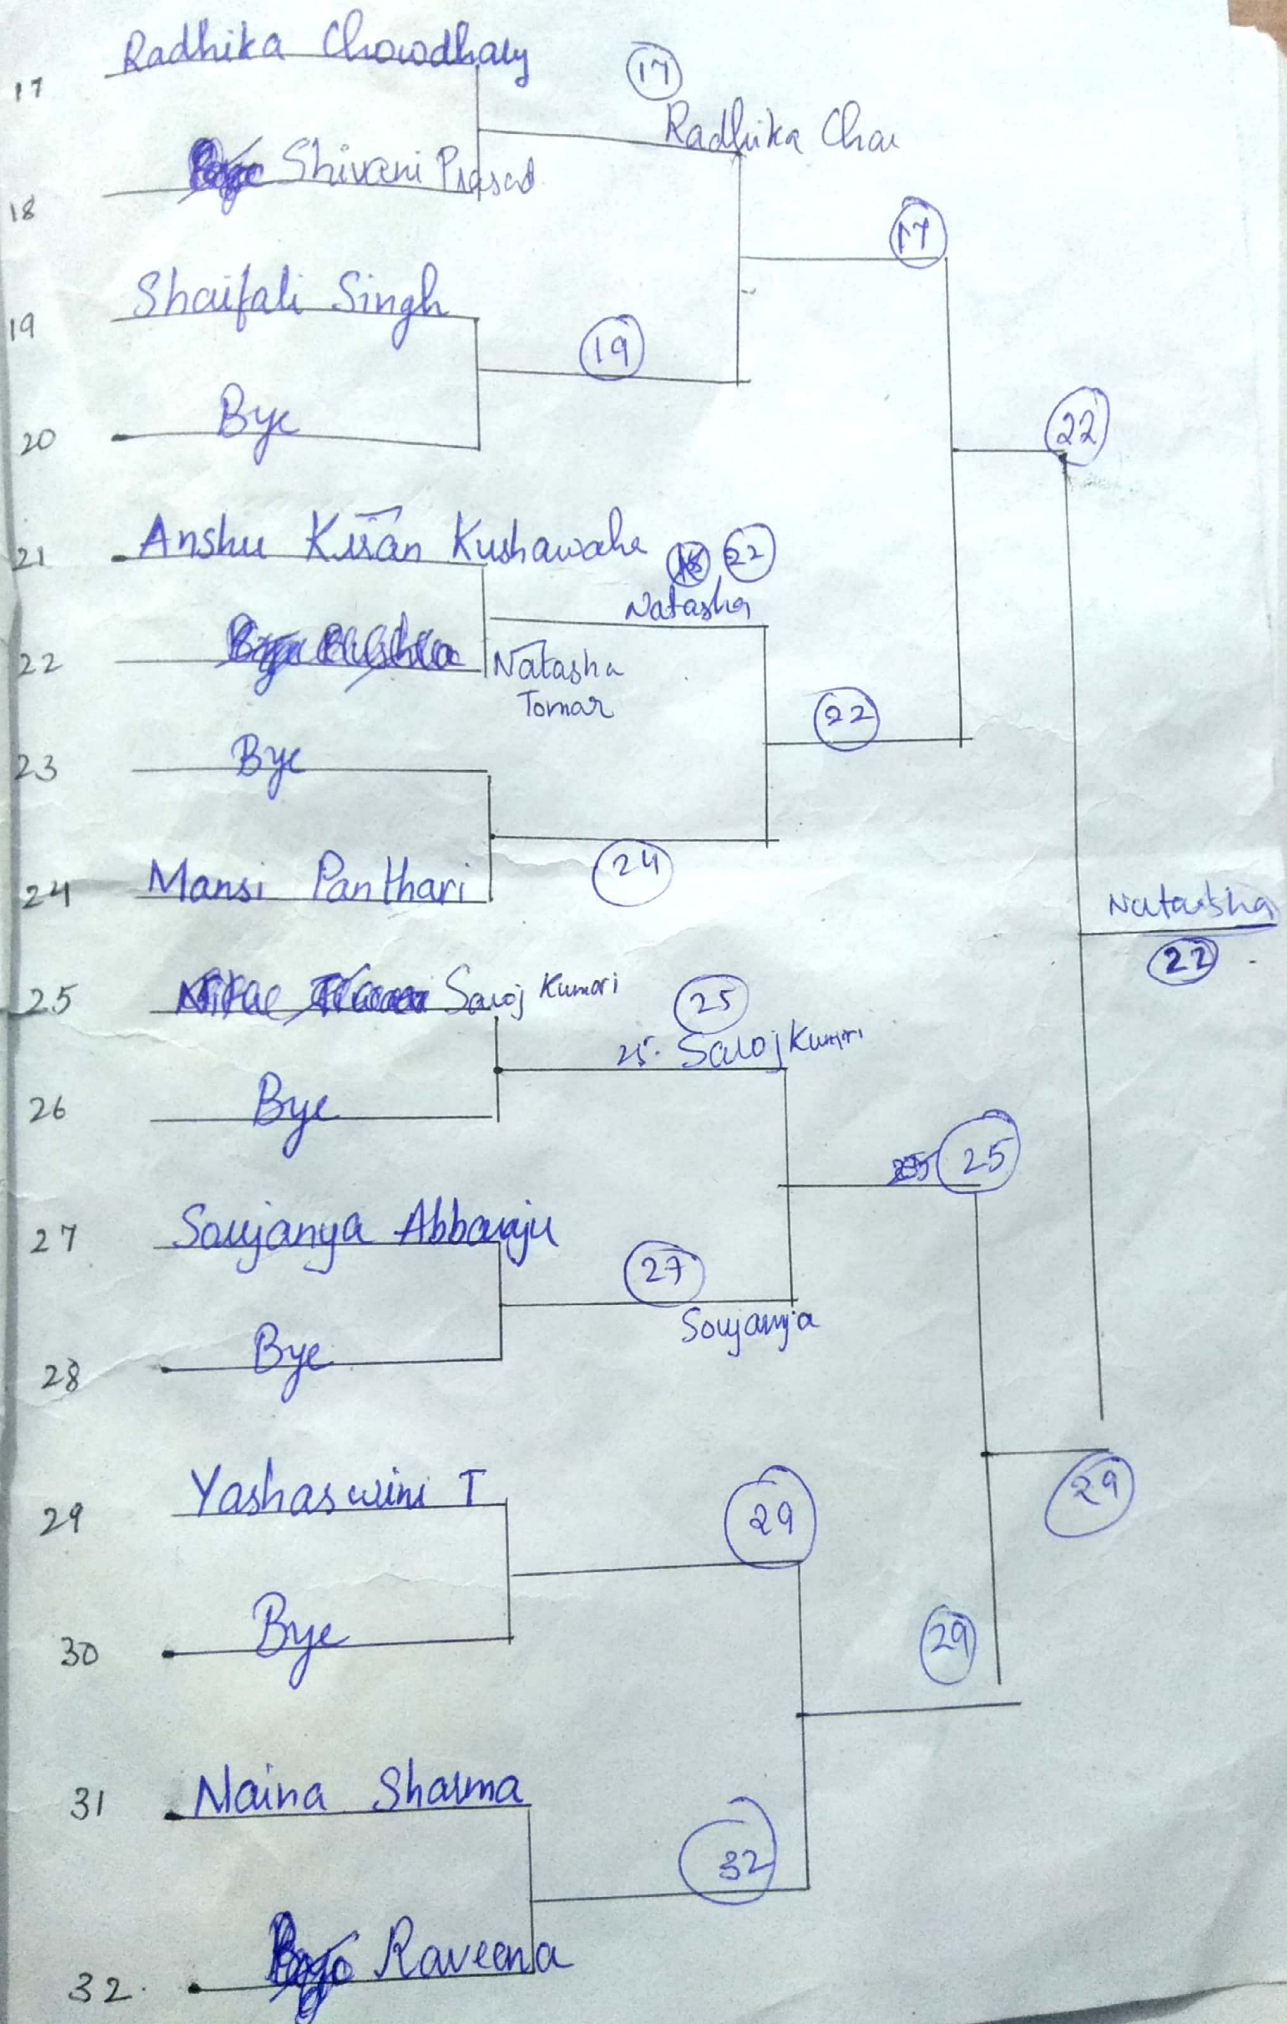 17 Radhika Chowdhary
17
Radhika Chow
18 Shivani Prasad
17
19 Shaifali Singh
19
20 Bye
22
21 Anshu Kiran Kushawaha
22
Natasha
22 Natasha
Tomar
22
23 Bye
24 Mansi Panthari
24
Natasha
22
25 Saroj Kumari
25
25. Saroj Kumari
26 Bye
25
27 Soujanya Abbaraju
27
Soujanya
28 Bye
29 Yashaswini T
29
29
30 Bye
29
31 Naina Sharma
32
32. Raveena